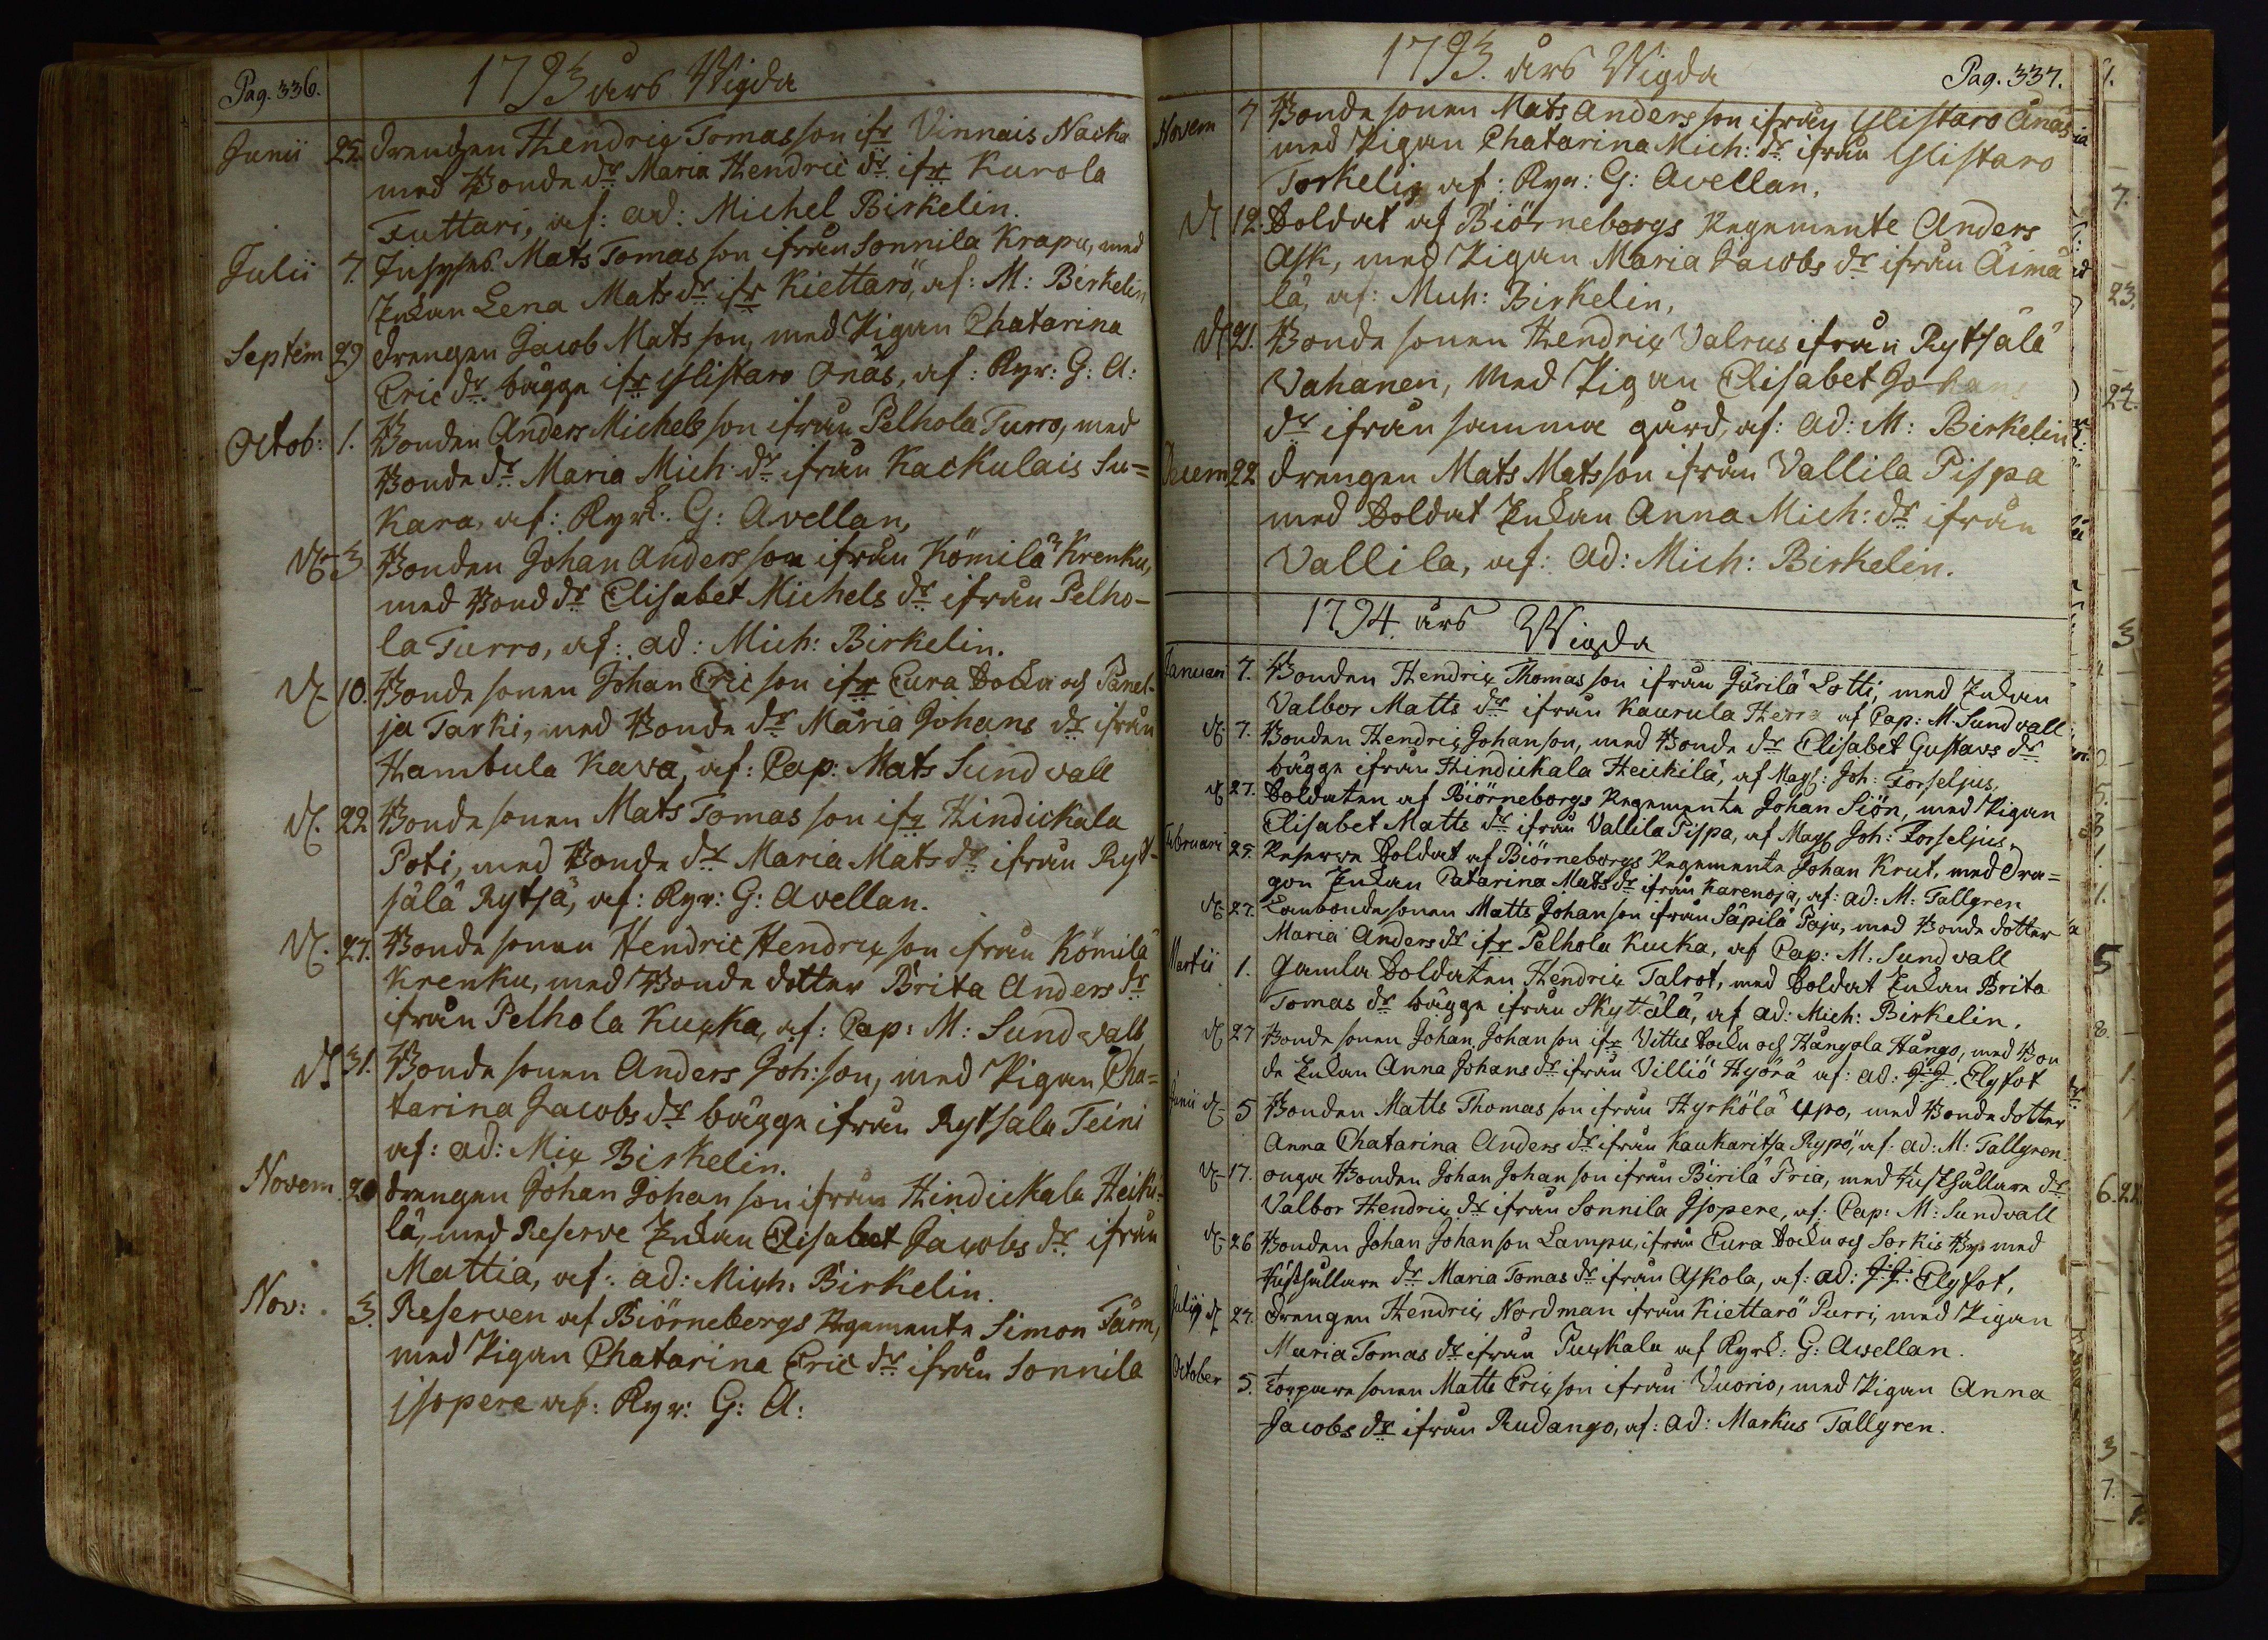 Pag. 336.
1793 års Wigda
Junii 25. drengen Hendrig Tomasson ifr Vinnais Nacka
med Bonde dr Maria Hendric dr ifr Kurola
Futtari, af: ad: Michel Birkelin.
Julii 7. Mats Tomasson ifrån Sonnila Krapu, med
Enkan Lena Mats dr ifr Kiettarö, af: M: Birkelin
Septem 29 drengen Jacob Matsson, med Pigan Chatarina
Eric dr bägge ifr Ylistaro Anäs, af: Ryr: G: A:
Octob: 1. Bonden Anders Michelsson ifrån Pelhola Turro, med
Bonde dr Maria Mich: dr ifrån Kackulais Su=
Kara, af: Ryr: G: Avellan,
3 Bonden Johan Andersson ifrån Kömilä Krenku,
med Bond dr Elisabet Michels dr ifrån Pelho-
la Turro, af: ad: Mich: Birkelin.
10. Bonde sonen Johan Ericson ifr Eura Sockn och Panel-
ja Tarki, med Bonde dr Maria Johans dr ifrån
Hambula Kava, af: Cap: Mats Sundvall
22 Bonde sonen Mats Tomasson ifr Hindickala
Poti, med Bonde dr Maria Mats dr ifrån Ryt-
sälä Rytsä, af: Ryr: G: Avellan.
27. Bonde sonen Hendric Hendricson ifrån Kömilä
Krenku, med Bonde dotter Brita Anders dr
ifrån Pelhola Kucka, af: Cap: M: Sundvall
31. Bonde sonen Anders Joh:son, med Pigan Cha=
tarina Jacobs dr bägge ifrån Rytsala Teini
af: ad: Mix Birkelin.
Novem 20 drengen Johan Johanson ifrån Hindickala Heiki-
lä, med Reserve Enkan Elisabet Jacobs dr ifrån
Mattia, af: ad: Mich: Birkelin.
Nov: 3. Reserven af Biörneborgs Regemente Simon Färm,
med Pigan Chatarina Eric dr ifrån Sonnila
jsopere af: Ryr: G: A:
1793. års Wigda
Pag. 337.
Novem 7 Bonde sonen Mats Andersson ifrån Ylistaro Anäs
med Pigan Chatarina Mich: dr ifrån Ylistaro
Torkelig af: Ryr: G: Avellan.
12. Soldat af Biörneborgs Regemente Anders
Ask, med Pigan Maria Jacobs dr ifrån Äimä
lä, af: Mich: Birkelin,
21. Bonde sonen Hendrix Valrus ifrån Rytsälä
Vahanen, Med Pigan Elisabet Johans
dr ifrån samma gård, af: ad: M: Birkelin
Decem 22 drengen Mats Matsson ifrån Vallila Pispa
med Soldat Enkan Anna Mich: dr ifrån
Vallila, af: ad: Mich: Birkelin.
1794. års Wigda
Januari 7. Bonden Hendrix Thomasson ifrån Järilä Lotti, med Enkan
Valbor Matts dr ifrån Kaurula Herra af Cap: M. Sundvall
7. Bonden Hendrix Johanson, med Bonde dr Elisabet Gustavs dr
bägge ifrån Hindickala Heickilä, af Mag: Joh: Forseljus,
27. Soldaten af Biörneborgs Regemente Johan Siön, med Pigan
Elisabet Matts dr ifrån Vallila Pispa, af Mag Joh: Forseljus,
Februari 25. Reserve Soldat af Biörneborgs Regemente Johan Krut, med Dra=
gon Enkan Catarina Mats dr ifrån Karenoja, af: ad: M: Tallgren
27. Lanbondesonen Matts Johanson ifrån Säpilä Paju, med Bonde dotter
Maria Anders dr ifr Pelhola Kucka, af Cap: M: Sundvall
Martii 1. Gamla Soldaten Hendrix Talrot, med Soldat Enkan Brita
Tomas dr bägge ifrån Skyttälä, af ad: Mich: Birkelin.
27 Bonde sonen Johan Johanson ifr Vittis Sockn och Hångola Hångo, med Bon
de Enkan Anna Johans dr ifrån Villiö Hyörä af: ad: J: J: Elgfot
Junii 5 Bonden Matts Thomasson ifrån Hyrkölä Ypo, med Bonde dotter
Anna Chatarina Anders dr ifrån Kaukaritsa Rypö, af: ad: M: Tallgren.
17. unga Bonden Johan Johanson ifrån Birilä Pria, med dr
Valbor Hendrix dr ifrån Sonnila Jsopere, af: Cap: M: Sundvall
26 Bonden Johan Johanson Lampu, ifrån Eura Sockn och Sorkis By med
dr Maria Tomas dr ifrån Askola, af: ad: J: J: Elgfot,
Julii 27. Drengen Hendrix Nordman ifrån Kiettarö Purri, med Pigan
Maria Tomas dr ifrån Puckala af Ryr: G: Avellan.
October 5. Torpare sonen Matts Ericson ifrån Vuorio, med Pigan Anna
Jacobs dr ifrån Rudango, af: ad: Markus Tallgren.